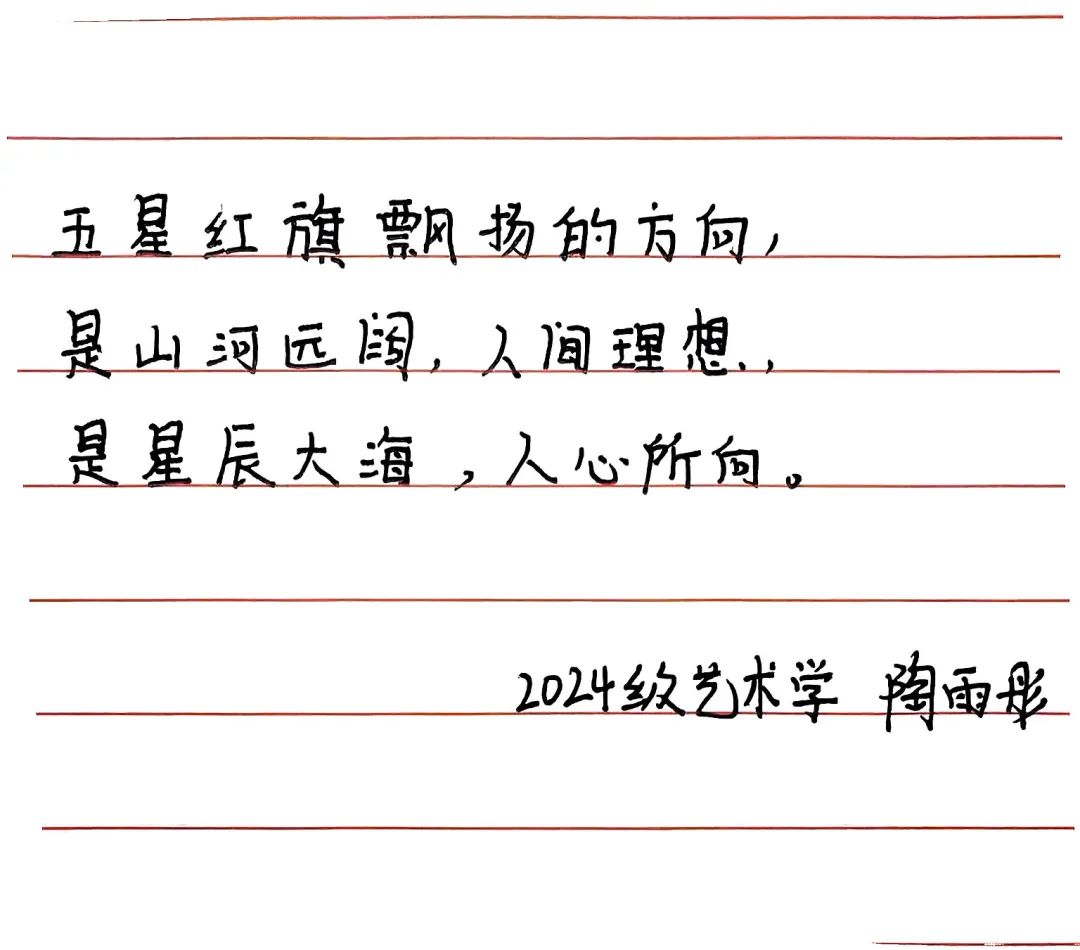 五星红旗飘扬的方向,
是山河远阔,人间理想,
是星辰大海,人心所向。
2024级艺术学 陶雨彤